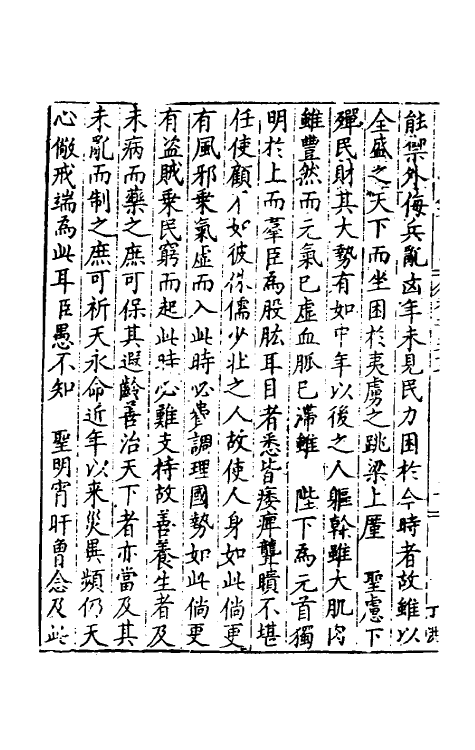 能禦外侮兵亂凶年未見民力困於今時者故雖以
全盛之天下而坐困於夷虜之跳梁上厪 聖慮下
殫民財其大勢有如中年以後之人軀幹雖大肌肉
雖豐然而元氣已虛血脈已滯雖 陛下為元首獨
明於上而羣臣為股肱耳目者悉皆痿痺聾瞶不堪
任使顧不如彼侏儒少壯之人故使人身如此倘更
有風邪乘氣虛而入此時必費調理國勢如此倘更
有盜賊乘民窮而起此時必難支持故善養生者及
未病而藥之庶可保其遐齡善治天下者亦當及其
未亂而制之庶可祈天永命近年以來災異頻仍天
心儆戒端為此耳臣愚不知 聖明宵旰曾念及此